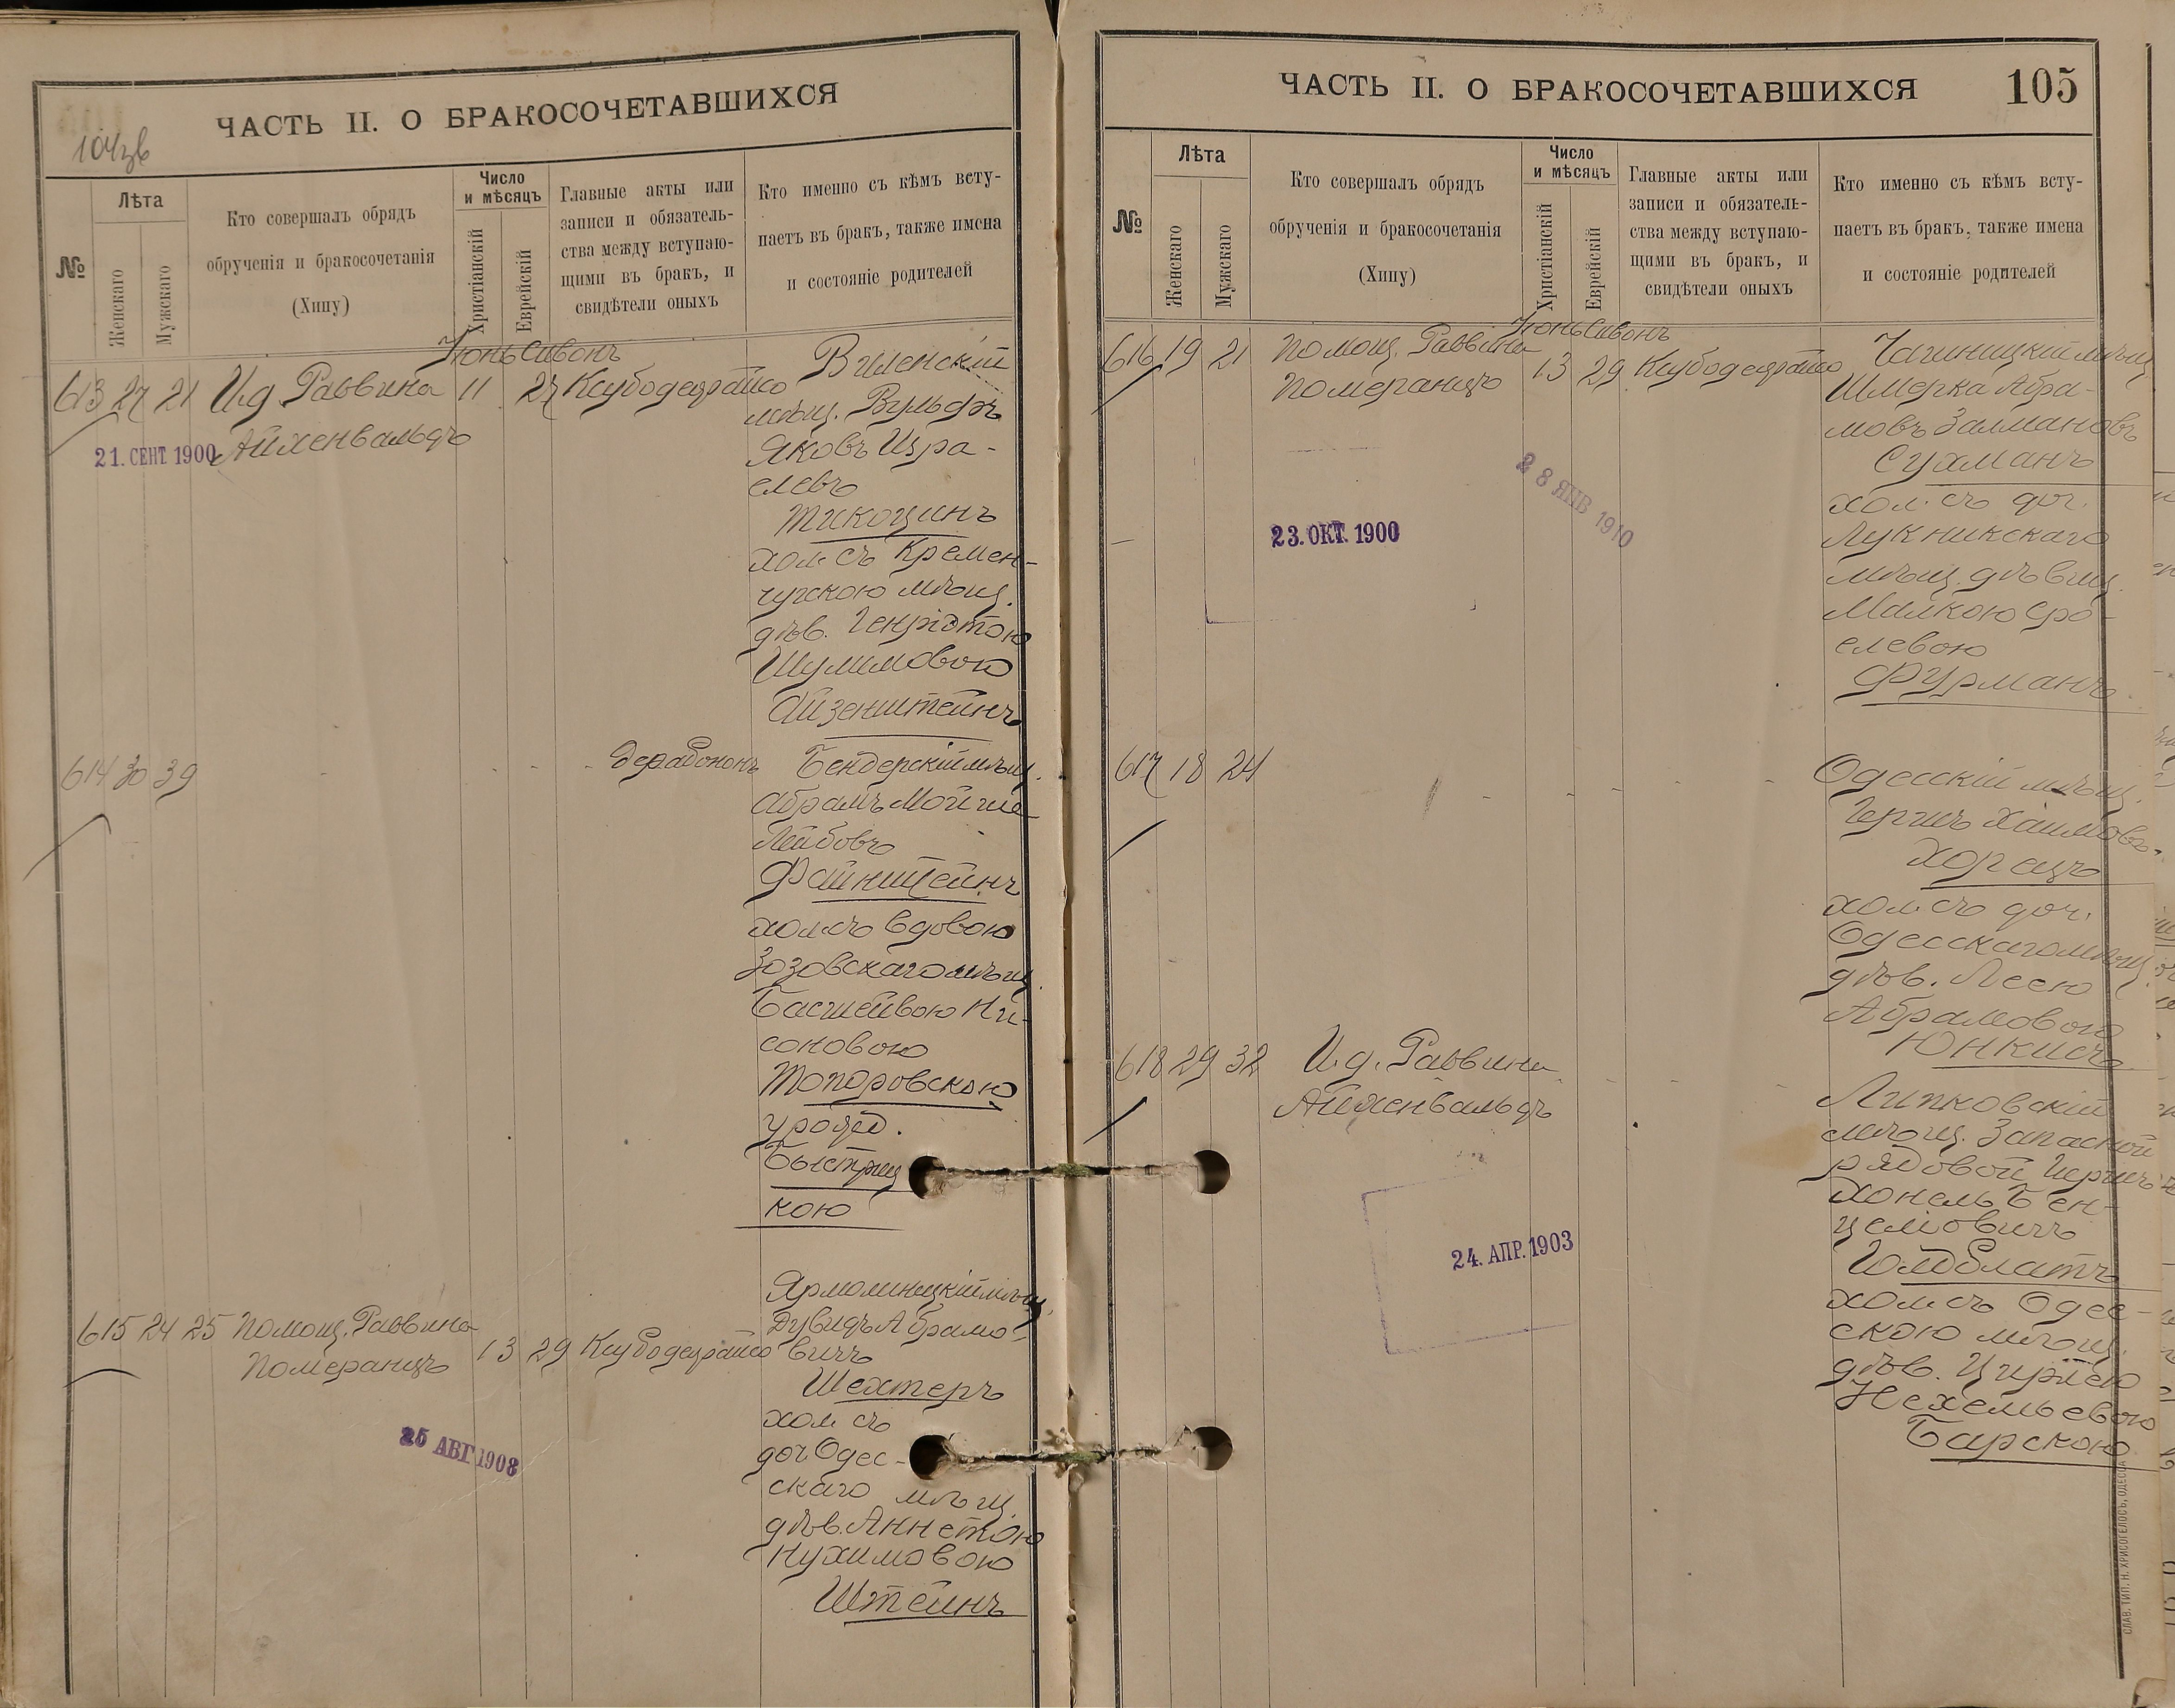 ЧАСТЬ II. О БРАКОСОЧЕТАВШИХСЯ
104зв
№
Лѣта
Женскаго
Мужскаго
Кто совершалъ обрядъ
обрученія и бракосочетанія
(Хипу)
Число
и мѣсяцъ
Христіанскій
Еврейскій
Главные акты или
записи и обязатель-
ства между вступаю-
щими въ бракъ, и
свидѣтели оныхъ
Кто именно съ кѣмъ всту-
паетъ въ бракъ, также имена
и состояніе родителей
Іюнь Сивонъ
613 27 21 И.д. Раввина 11 27
Айхенвальдъ
21. СЕНТ. 1900
Виленскій
мѣщ. Вульфъ
Яковъ Изра-
елевъ
Тикоцинъ
хол. съ Кремен-
чугскою мѣщ.
дѣв. Генріэтою
Шулимовою
Айзенштейнъ
614 30 39 - - - -
Бендерскій мѣщ.
Абрамъ Мойше
Лейбовъ
Файнштейнъ
хол. съ вдовою
мѣщ.
Басшейвою Ни-
соновою
Топоровскою
урожд.
Быстриц
кою
615 24 25 Помощ. Раввина 13 29
Померанцъ
25 АВГ 1908
Ярмолинецкій мѣщ.
Дувидъ Абрамо-
вичъ
Шехтеръ
хол. съ
доч. Одес-
скаго мѣщ.
дѣв. Аннетою
Нухимовою
Штейнъ
ЧАСТЬ II. О БРАКОСОЧЕТАВШИХСЯ
105
№
Лѣта
Женскаго
Мужскаго
Кто совершалъ обрядъ
обрученія и бракосочетанія
(Хипу)
Число
и мѣсяцъ
Христіанскій
Еврейскій
Главные акты или
записи и обязатель-
ства между вступаю-
щими въ бракъ, и
свидѣтели оныхъ
Кто именно съ кѣмъ всту-
паетъ въ бракъ, также имена
и состояніе родителей
Іюнь Сивонъ
616 19 21 Помощ. Раввина 13 29
Померанцъ
23. ОКТ. 1900
28 ЯНВ 1910
мѣщ.
Шмерка Абра-
мовъ Залмановъ
Сухманъ
хол. съ доч.
Лукникскаго
мѣщ. дѣвиц.
Малкою Сро-
елевою
Фурманъ
617 18 24 - - - -
Одесскій мѣщ.
Гершъ Хаимовъ
Хорецъ
хол. съ доч.
Одесскаго мѣщ.
дѣв. Леею
Абрамовою
Юнкисъ
618 29 32 И.д. Раввина - - -
Айхенвальдъ
24. АПР. 1903
Липковскій
мѣщ. Запасной
рядовой Гершъ
Хонель Бен-
целіовичъ
Голдблатъ
хол. съ Одес-
скою мѣщ.
дѣв. Цирлею
Нехемьевою
Барскою
СЛАВ. ТИП. Н. ХРИСОГЕЛОСЪ, ОДЕССА